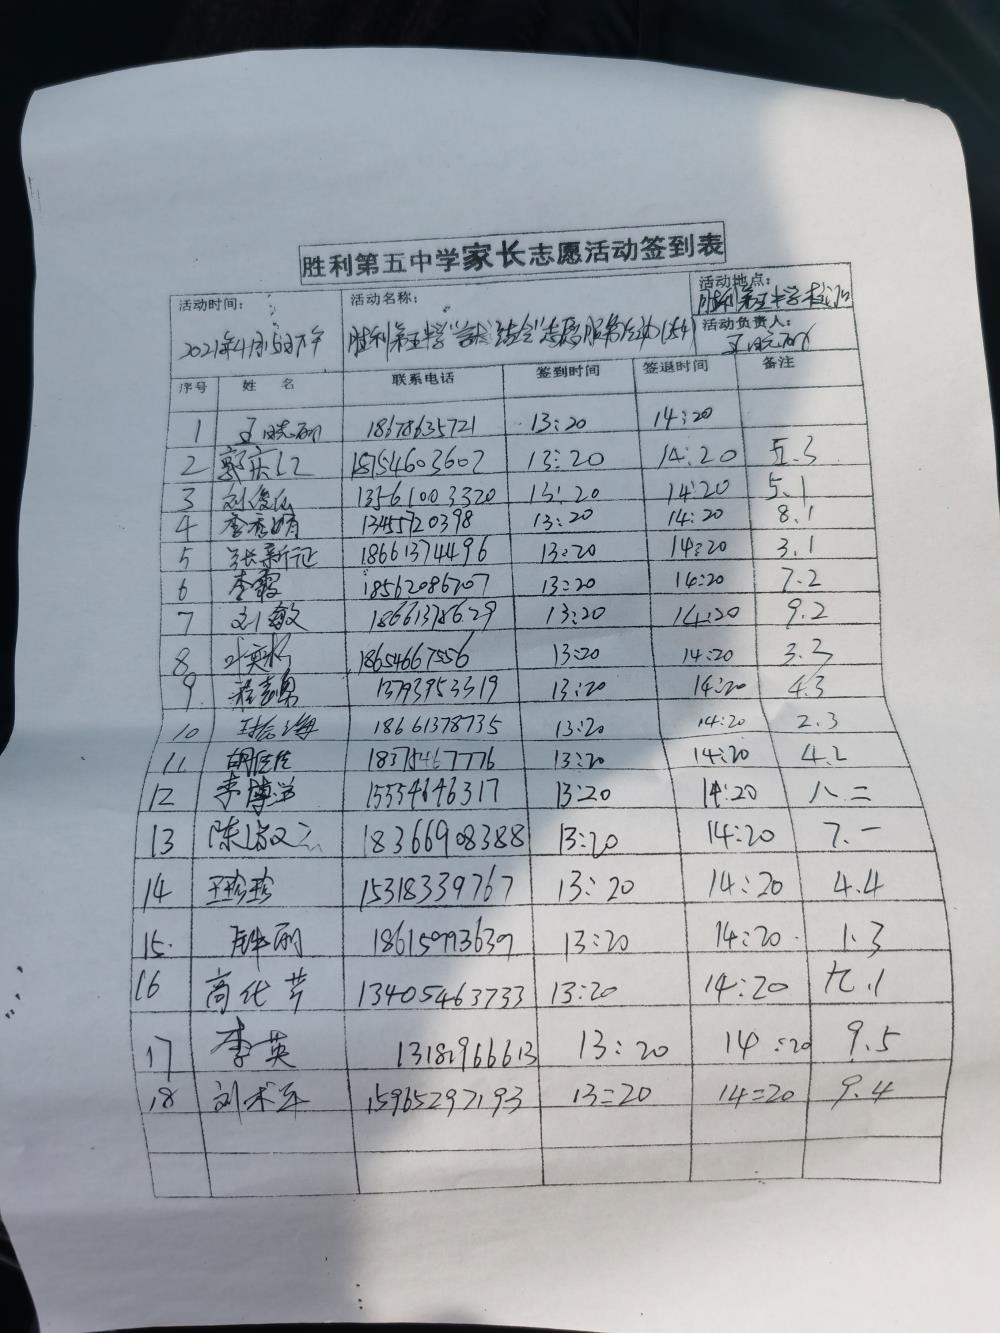 胜利第五中学家长志愿活动签到表
活动时间： 活动名称： 活动地点：
2021年4月15日下午 胜利第五中学" 结合"志愿服务活动 胜利第五中学
活动负责人：
王晓丽
序号 姓 名 联系电话 签到时间 签退时间 备注
1 王晓丽 18678635721 13:20 14:20
2 郭庆江 15154603602 13:20 14:20 五.3
3 刘俊 13561003320 13:20 14:20 5.1
4 李秀娟 13455720398 13:20 14:20 8.1
5 张新征 18661374496 13:20 14:20 3.1
6 李霞 18562086707 13:20 14:20 7.2
7 刘敏 18661378629 13:20 14:20 9.2
8 叶 18654667556 13:20 14:20 3.2
9 13793953319 13:20 14:20 4.3
10 海 18661378735 13:20 14:20 2.3
11 胡佳佳 18375467776 13:20 14:20 4.2
12 李博洋 15554646317 13:20 14:20 八.二
13 陈 18366908388 13:20 14:20 7.一
14 王珍珍 15318339767 13:20 14:20 4.4
15 丽 18615993639 13:20 14:20 1.3
16 高化芹 13405463733 13:20 14:20 九.1
17 李英 13181966613 13:20 14:20 9.5
18 刘术军 15965297193 13=20 14=20 9.4